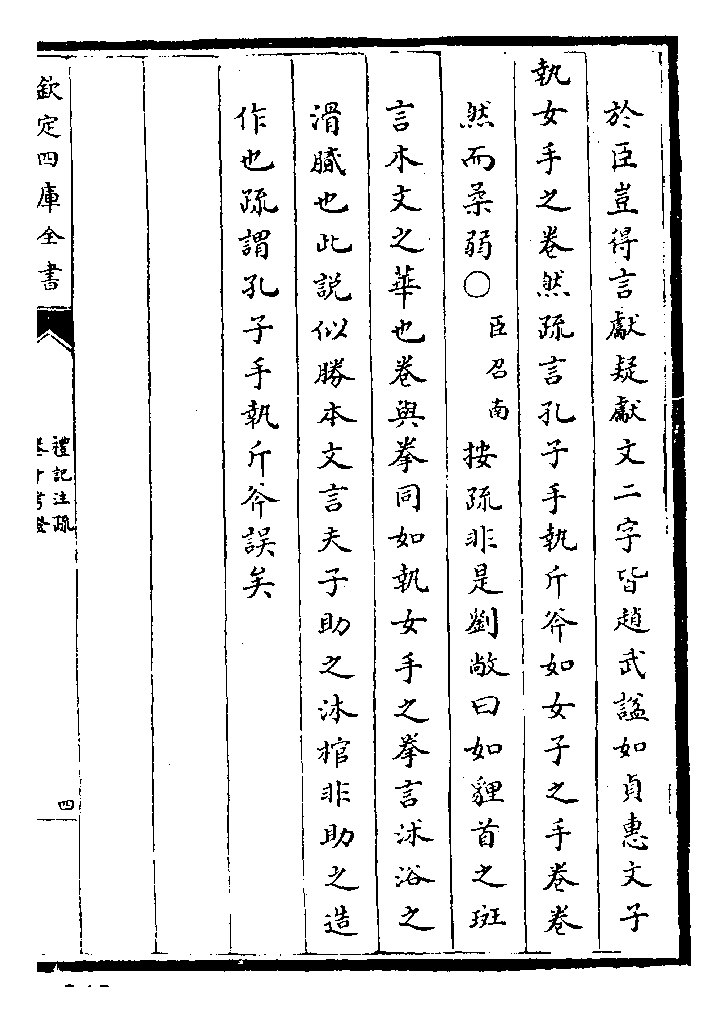 於臣豈得言獻疑獻文二字皆趙武諡如貞惠文子
執女手之卷然疏言孔子手執斤斧如女子之手卷卷
然而柔弱〇臣召南按疏非是劉敞曰如貍首之斑
言木文之華也卷與拳同如執女手之拳言沭浴之
滑膩也此説似勝本文言夫子助之沐棺非助之造
作也疏謂孔子手執斤斧誤矣
欽定四庫全書
禮記注疏
四